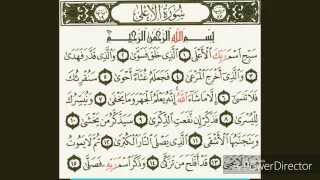 سُورَةُ الأَعْلَى
بِسْمِ اللَّهِ الرَّحْمَٰنِ الرَّحِيمِ
سَبِّحِ اسْمَ رَبِّكَ الْأَعْلَى ١ الَّذِي خَلَقَ فَسَوَّى ٢ وَالَّذِي قَدَّرَ فَهَدَى
٣ وَالَّذِي أَخْرَجَ الْمَرْعَى ٤ فَجَعَلَهُ غُثَاءً أَحْوَى ٥ سَنُقْرِئُكَ
فَلَا تَنسَى ٦ إِلَّا مَا شَاءَ اللَّهُ إِنَّهُ يَعْلَمُ الْجَهْرَ وَمَا يَخْفَى ٧ وَنُيَسِّرُكَ
لِلْيُسْرَى ٨ فَذَكِّرْ إِن نَّفَعَتِ الذِّكْرَى ٩ سَيَذَّكَّرُ مَن يَخْشَى ١٠
وَيَتَجَنَّبُهَا الْأَشْقَى ١١ الَّذِي يَصْلَى النَّارَ الْكُبْرَى ١٢ ثُمَّ لَا يَمُوتُ
١٣ قَدْ أَفْلَحَ مَن تَزَكَّى ١٤ وَذَكَرَ اسْمَ رَبِّهِ فَصَلَّى ١٥
PowerDirector